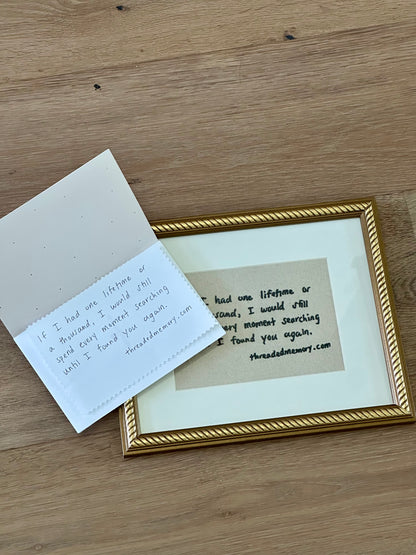 If I had one lifetime or
a thousand, I would still
spend every moment searching
until I found you again.
threadedmemory.com
I had one lifetime or
sand, I would still
every moment searching
I found you again.
threadedmemory.com